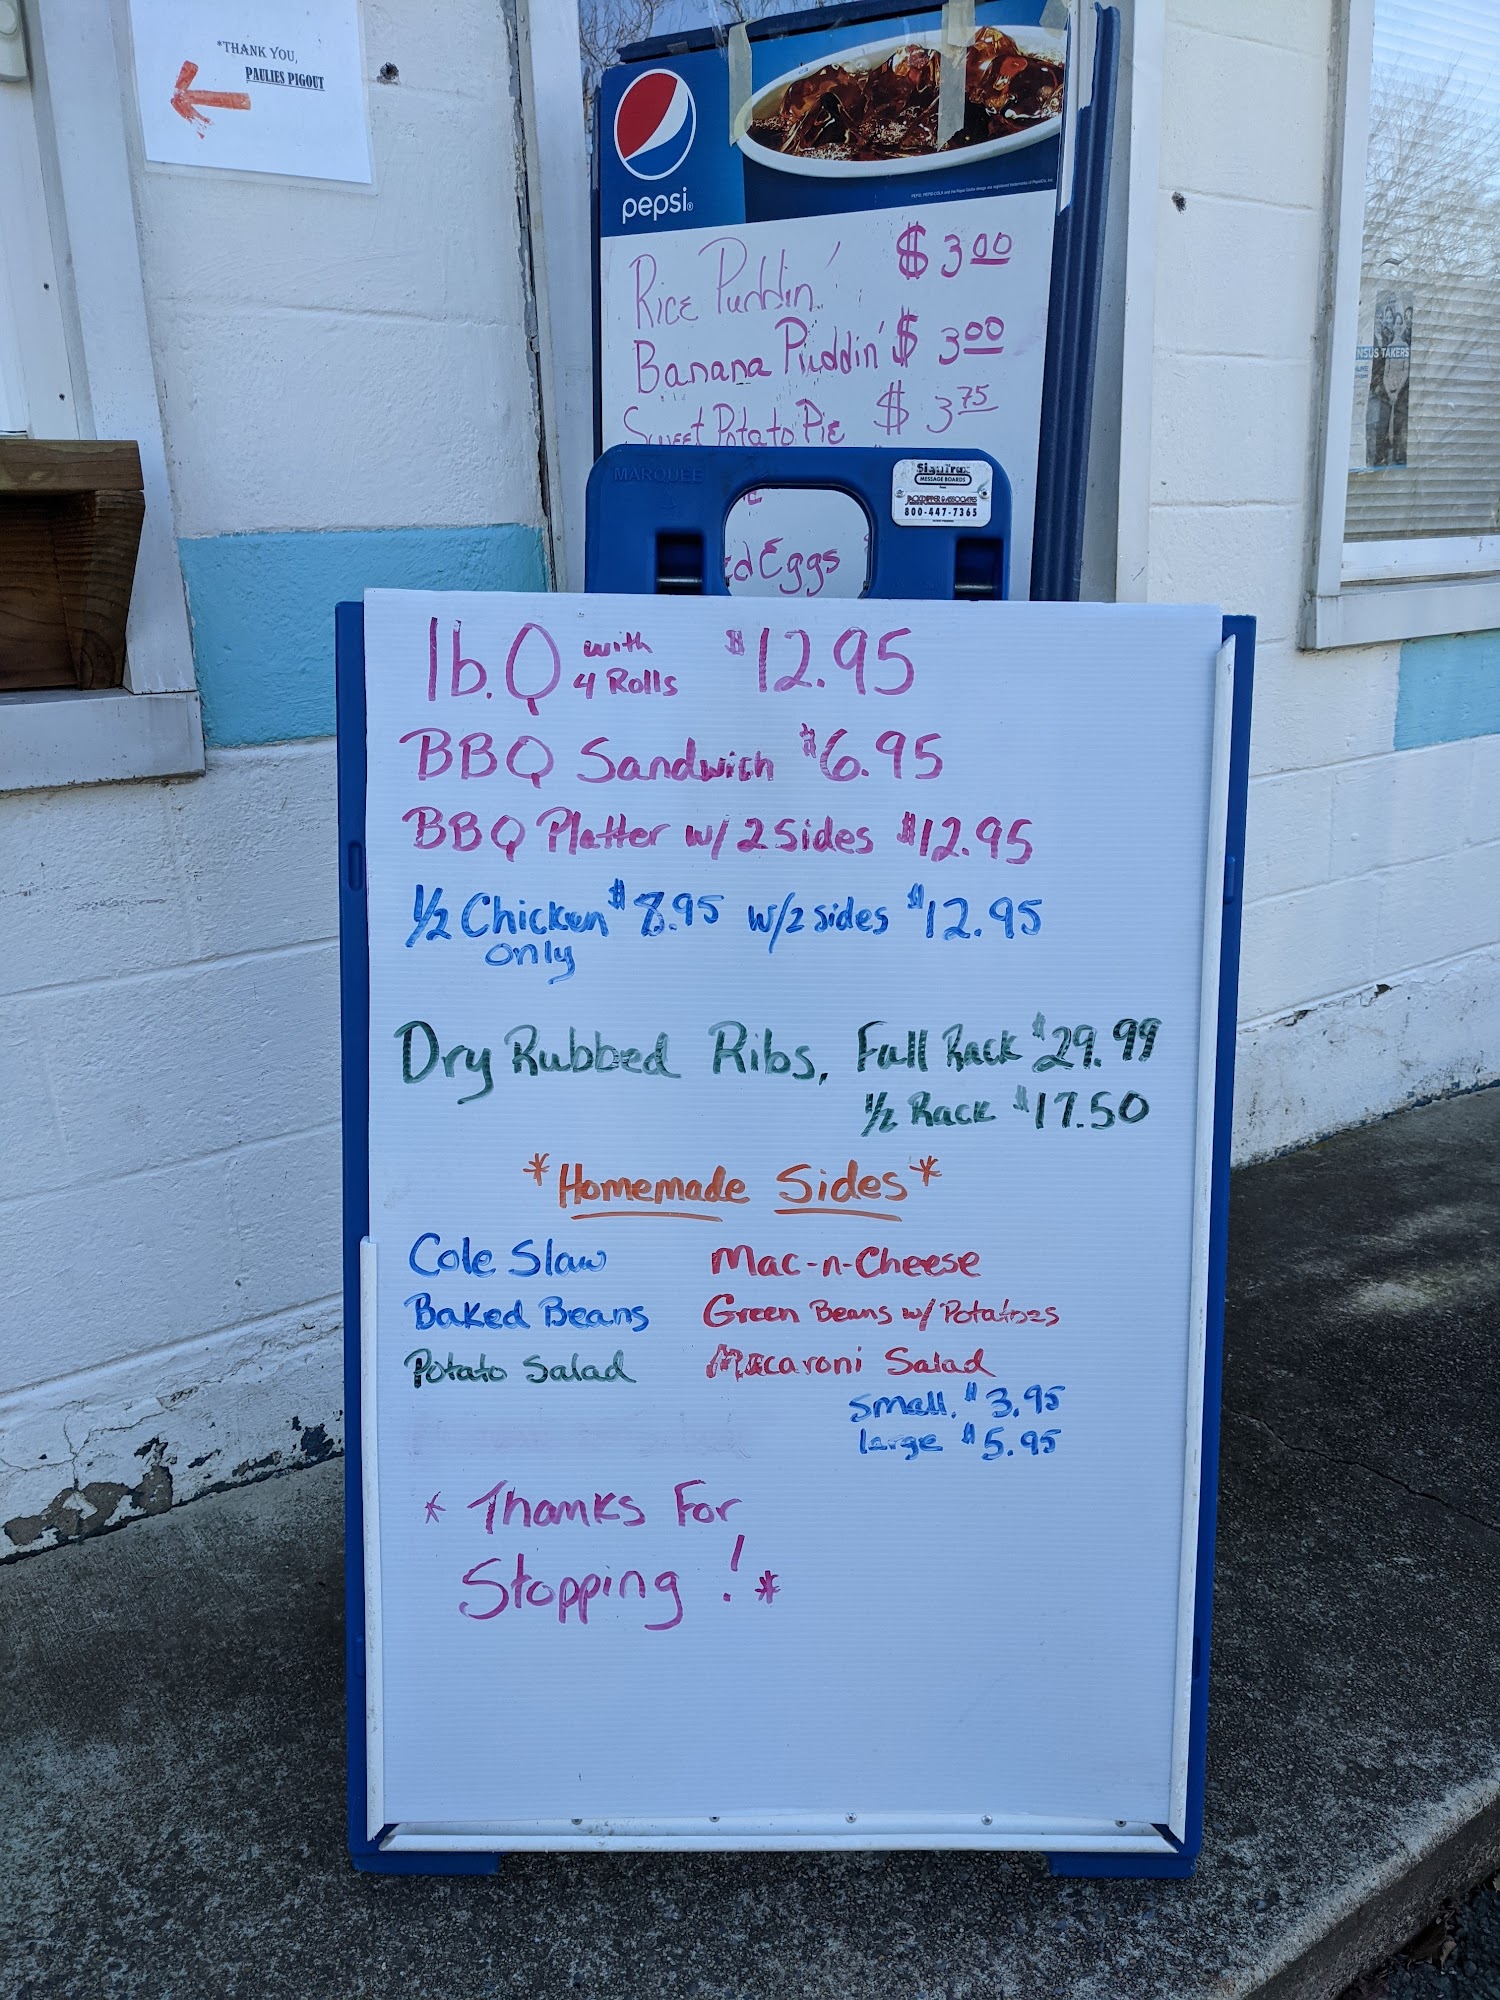 *THANK YOU,
PAULIES PIGOUT
pepsi
Rice Puddin' $3.00
Banana Puddin' $3.00
Sweet Potato Pie $3.75
MARQUEE
MESSAGE BOARDS
800-447-7365
Eggs
NSUS TAKERS
1b. Q with 4 Rolls $12.95
BBQ Sandwich $6.95
BBQ Platter w/ 2 Sides $12.95
1/2 Chicken $8.95 w/2 sides $12.95
only
Dry Rubbed Ribs, Full Rack $29.99
1/2 Rack $17.50
*Homemade Sides*
Cole Slaw Mac-n-Cheese
Baked Beans Green Beans w/ Potatoes
Potato Salad Macaroni Salad
Small. $3.95
large $5.95
* Thanks For
Stopping! *